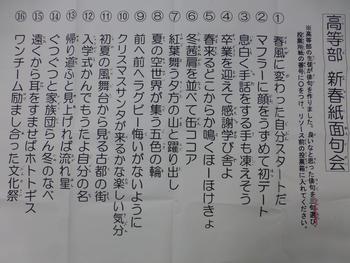 高等部 新春紙面句会
※高等部の生徒が俳句を作りました。良いなと思った俳句を三句選び、
投票用紙の番号に○をつけ、リソース前の投票箱に入れてください。
① 春風に変わった自分スタートだ
② マフラーに顔をうずめて初デート
③ 息白く手話をする手も凍えそう
④ 卒業を迎えて感謝学び舎よ
⑤ 春来るとどこからか鳴くほーほけきょ
⑥ 冬茜肩を並べて缶ココア
⑦ 紅葉舞う夕方の山と躍り出し
⑧ 夏の空世界が集う五色の輪
⑨ 前へ前へラグビー悔いがないように
⑩ クリスマスサンタが来るかな楽しい気分
⑪ 初夏の風舞台から見る古都の街
⑫ 入学式かんでもったよ自分の名
⑬ 帰り道ふと見上げれば流れ星
⑭ ぐつぐつと家族団らん冬のなべ
⑮ 遠くから耳をすませばホトトギス
⑯ ワンチーム励まし合った文化祭